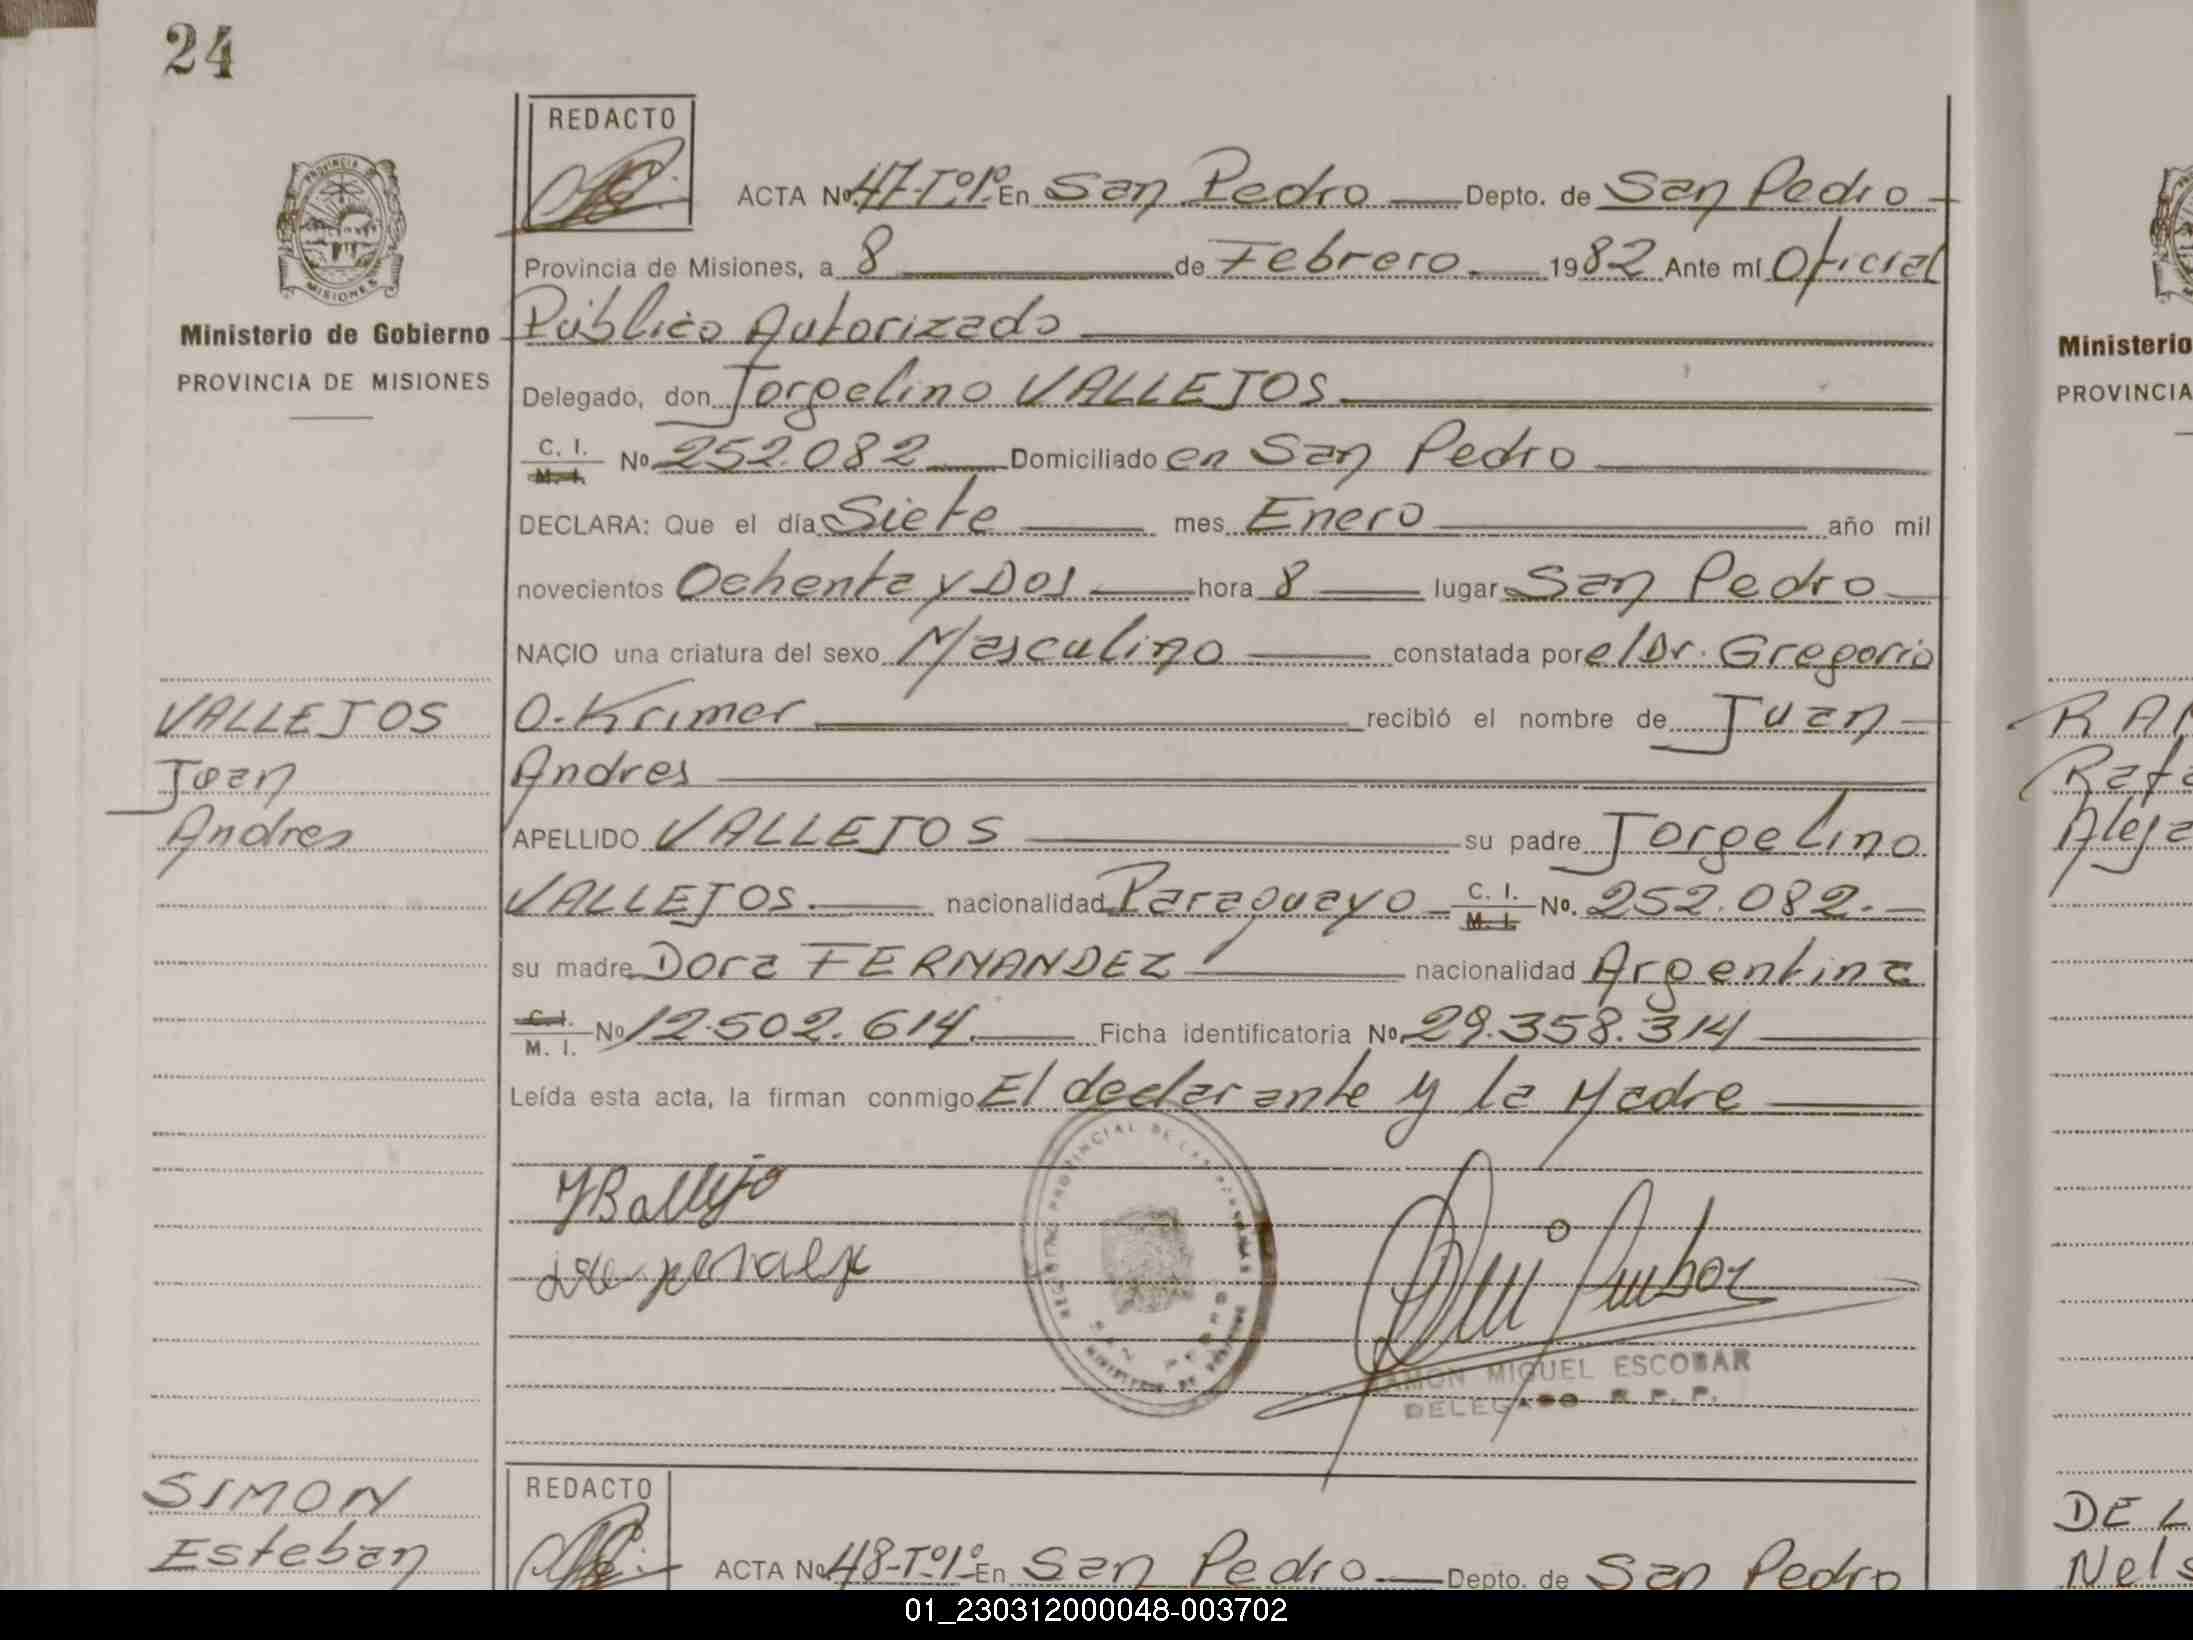 24
REDACTO
ACTA No. 47-Tº1º. En San Pedro Depto. de San Pedro
Provincia de Misiones, a 8 de Febrero 1982 Ante mí Oficial
Público Autorizado
Delegado, don Jorgelino VALLEJOS
C. I. M. I. No. 252.082 Domiciliado en San Pedro
DECLARA: Que el día Siete mes Enero año mil
novecientos Ochenta y Dos hora 8 lugar San Pedro
NACIO una criatura del sexo Masculino constatada por el Dr. Gregorio
O. Krimer recibió el nombre de Juan
Andres
APELLIDO VALLEJOS su padre Jorgelino
VALLEJOS. nacionalidad Paraguayo C. I. M. I. No. 252.082.
su madre Dora FERNANDEZ nacionalidad Argentina
C. I. M. I. No. 12.502.614 Ficha identificatoria No. 29.358.314
Leída esta acta, la firman conmigo El declarante y la Madre
REGISTRO PROVINCIAL DE LAS PERSONAS
SAN PEDRO
RAMON MIGUEL ESCOBAR
DELEGADO R. P. P.
PROVINCIA
MISIONES
Ministerio de Gobierno
PROVINCIA DE MISIONES
VALLEJOS
Juan
Andres
SIMON
Esteban
REDACTO
ACTA No. 48-Tº1º- En San Pedro Depto. de San Pedro
Ministerio
PROVINCIA
DE L
Nels
01_230312000048-003702